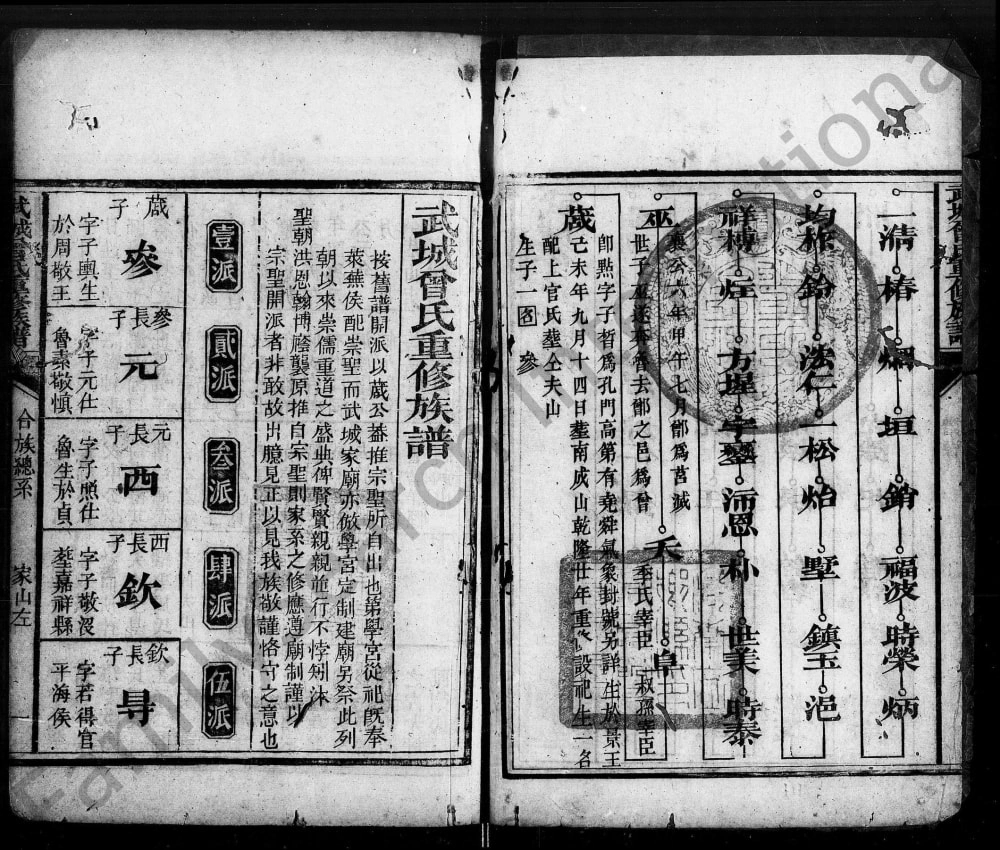 一清 椿 炯 垣 銷 福波 時榮 炳
均 祚 鈖 法仁 一松 炲 墅 鎮玉 浥
祥 榑 煌 方 墀 宇 沛恩 朴 世美 時泰
巫
襄公六年甲午七月鄫爲莒滅
世子巫逐奔晉去鄫之邑爲曾
夭
季氏宰臣
叔孫宰臣
阜
蒧
卽點字子晳爲孔門高第有堯舜氣象封號另詳生於景王
己未年九月十四日塟南成山乾隆廿年重修設祀生一名
配上官氏塟仝夫山
生子一名 參
武城曾氏重修族譜
武城曾氏重修族譜
按舊譜開派以蒧公葢推宗聖所自出也第學宮從祀旣奉
萊蕪侯配崇聖而武城家廟亦倣學宮定制建廟另祭此列
朝以來崇儒重道之盛典俾賢賢親親並行不悖矧沐
聖朝洪恩翰博廕襲原推自宗聖則家系之修應遵廟制謹以
宗聖開派者非敢故出臆見正以見我族敬謹恪守之意也
壹派 貳派 叄派 肆派 伍派
蒧子
參
字子輿生
於周敬王
參長子
元
字子元仕
魯素敬慎
元長子
西
字子照仕
魯生於貞
西長子
欽
字子敬沒
塟嘉祥縣
欽長子
尋
字若得官
平海侯
武城曾氏重修族譜
合族總系
家山左
FamilySearch International